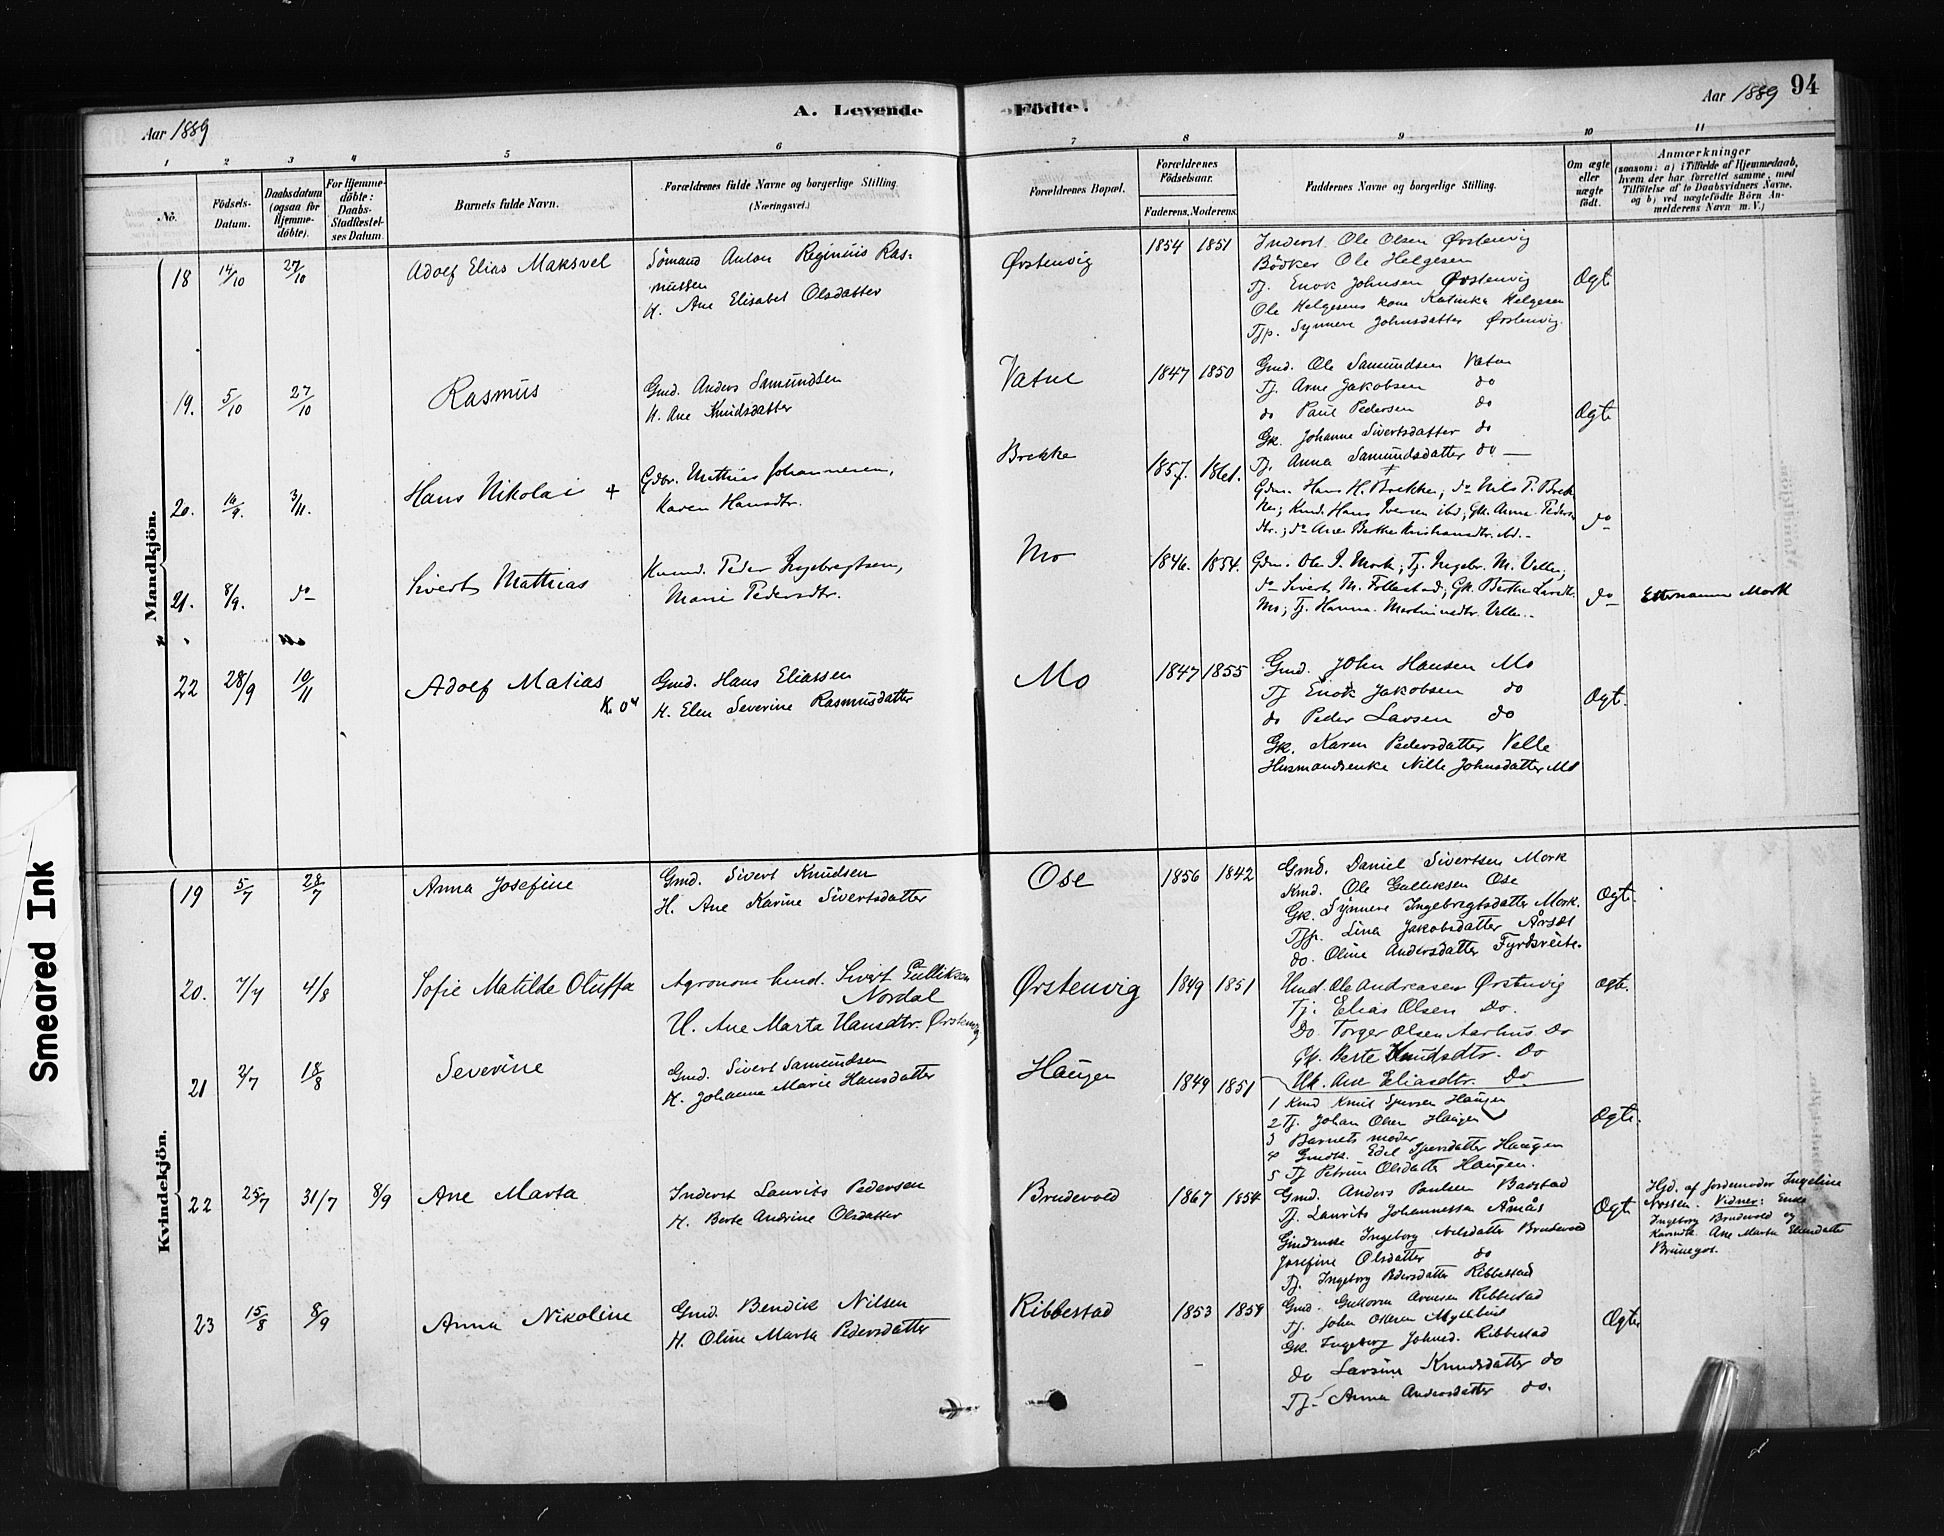 94
Aar 1889
A. Levende
Födte.
Aar 1889
1 2 3 4 5 6 7 8 9 10 11
No.
Födsels-Datum.
Daabsdatum (ogsaa for Hjemme-döbte).
For Hjemme-döbte: Daabs-Stadfæstel-ses Datum.
Barnets fulde Navn.
Forældrenes fulde Navne og borgerlige Stilling.
(Næringsvei.)
Forældrenes Bopæl.
Forældrenes Födselsaar.
Faderens. Moderens.
Faddernes Navne og borgerlige Stilling.
Om ægte eller uægte födt.
Anmærkninger
(saasom: a) i Tilfælde af Hjemmedaab, hvem der har forrettet samme, med Tilföielse af to Daabsvidners Navne, og b) ved uægtefödte Börn An-melderens Navn m. V.)
Mandkjön.
18 14/10 27/10 Adolf Elias Maksvel
Sömand Anton Reginius Ras-
mussen
H. Ane Elisabet Olsdatter
Örstenvig 1854 1851
Inderst Ole Olsen Örstenvig
Bödker Ole Helgesen
Tj. Enok Johnsen Örstenvig
Ole Helgesens kone Katinka Helgesen
Tjp. Synnere Johnsdatter Örstenvig.
Ægt
19. 5/10 27/10 Rasmus
Gmd. Anders Samundsen
H. Ane Knudsdatter
Vatne 1847 1850
Gmd. Ole Samundsen Vatne
Tj. Arne Jakobsen do
do Paul Pedersen do
Gk. Johanne Sivertsdatter do
Tj. Anna Samundsdatter do
Ægt
20. 14/9. 3/11. Hans Nikolai +
Gdbr. Mathias Johannesen,
Karen Hansdtr.
Brekke 1857. 1861.
Gdm. Hans H. Brekke; do Nils P. Brek-
ke; Kmd. Hans Iversen ibd; Gk. Anne Peders-
dtr.; do Ane Berthe Kristiansdtr. ibd.
do
21. 8/9. do Sivert Mathias
Kaamd. Peder Ingebregtsen,
Marie Pedersdtr.
Mo 1846. 1854.
Gdm. Ole P. Mork; Tj. Ingebr. M. Velle;
do Sivert M. Follestad; Gk. Berthe Larsdtr.
Mo; Tj. Hanna Martinusdtr. Velle.
do Etternamn Mork
22 28/9 10/11 Adolf Matias
K. 04
Gmd. Hans Eliassen
H. Elen Severine Rasmusdatter
Mo 1847 1855
Gmd. John Hansen Mo
Tj Enok Jakobsen do
do Peder Larsen do
Gk. Karen Pedersdatter Velle
Husmandsenke Nille Johnsdatter Mo
Ægt.
Kvindekjön.
19 5/7 28/7 Anna Josefine
Gmd. Sivert Knudsen
H. Ane Karine Sivertsdatter
Ose 1856 1842
Gmd. Daniel Sivertsen Mork
Kmd. Ole Gulliksen Ose
Gk. Synnere Ingebregtsdatter Mork.
Tjp. Lina Jakobsdatter Årset
do. Oline Andersdatter Fyrdsreite.
Ægt.
20. 7/7 4/8 Sofie Matilde Oluffa
Agronom Gmd. Sivert Gulliksen
Nordal
H. Ane Marta Hansdtr. Örstenvig
Örstenvig 1849 1851
Gmd Ole Andreasen Örstenvig
Tj. Elias Olsen Do.
Do. Torger Olsen Aarhus Do
Gk. Berte Knudsdtr. Do
Gk. Ane Eliasdtr. Do
Ægt.
21 2/7 18/8 Severine
Gmd. Sivert Samundsen
H. Johanne Marie Hansdatter
Haugen 1849 1851
1 Kmd Knut Iversen Haugen
2 Tj. Johan Olsen Haugen
3 Barnets moder
4 Gmdk. Edel Iversdatter Haugen
5 Tj Petrine Olsdatter Haugen.
Ægte.
22 25/7 31/7 8/9 Ane Marta
Inderst Laurits Pedersen
H. Berte Andrine Olsdatter
Brudevold 1867 1854
Gmd. Anders Paulsen Badstad
Tj. Laurits Johannessen Åmås
Gmdenke Ingeborg Nelsdatter Brudevold
Josefine Olsdatter do
Tj. Ingeborg Pedersdatter Ribbestad
Ægt
Hjd. af Jordemoder Ingeline
Nossen. Vidner: Enke
Ingeborg Brudevold og
Kaarmdk. Ane Marta Elendatter
Brunegot.
23 15/8 8/9 Anna Nikoline
Gmd. Bendik Nilsen
H. Oline Marta Pedersdatter
Ribbestad 1853 1859
Gmd. Guttorm Arnesen Ribbestad
Tj. John Olsen Myklebust
Gk. Ingeborg Johnsd. Ribbestad
do Larsine Knudsdatter do
Tj. Anna Andersdatter do.
Ægte
Smeared Ink